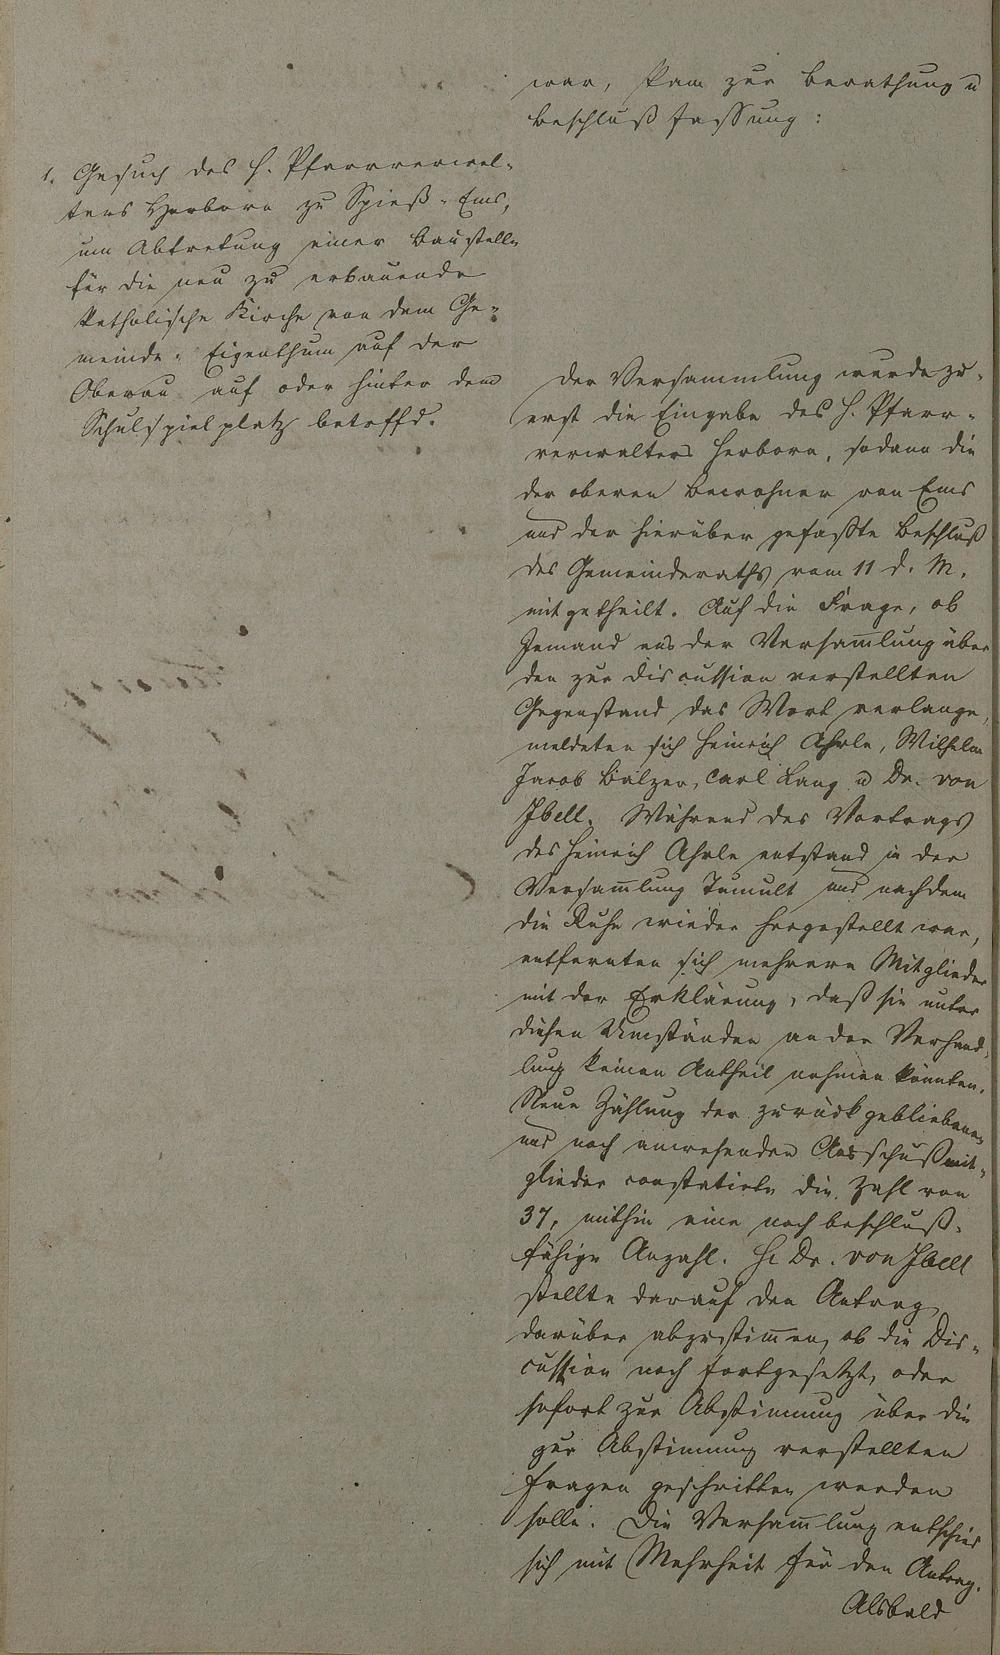 war, kam zur Berathung u
Beschlußfassung:
1. Gesuch des H. Pfarrverwal-
ters Herborn zu Spieß-Ems,
um Abtretung einer Baustelle
für die neu zu erbauende
katholische Kirche von dem Ge-
meinde-Eigenthum auf der
Oberau auf oder hinter dem
Schulspielplatz betreffd.
Der Versammlung wurde zu-
erst die Eingabe des H. Pfarr-
verwalters Herborn, sodann die
der oberen Bewohner von Ems
und der hierüber gefaßte Beschluß
des Gemeinderaths vom 11 d. M.
mitgetheilt. Auf die Frage, ob
Jemand aus der Versam̅lung über
den zur Discussion verstellten
Gegenstand das Wort verlange,
meldeten sich Heinrich Ahrle, Wilhelm
Jacob Balzer, Carl Lang u Dr. von
Ibell. Während des Vortrags
des Heinrich Ahrle entstand in der
Versam̅lung Tumult und nachdem
die Ruhe wieder hergestellt war,
entfernten sich mehrere Mitglieder
mit der Erklärung, daß sie unter
diesen Umständen an der Verhand-
lung keinen Antheil nehmen könnten.
Neue Zählung der zurückgebliebenen
und noch anwesenden Ausschußmit-
glieder constatirte die Zahl von
37, mithin eine noch beschluß-
fähige Anzahl. H. Dr. von Ibell
stellte darauf den Antrag,
darüber abzustim̅en, ob die Dis-
cussion noch fortgesetzt, oder
sofort zur Abstimmung über die
zur Abstimmung verstellten
Fragen geschritten werden
solle. Die Versam̅lung entschied
sich mit Mehrheit für den Antrag.
Alsbald